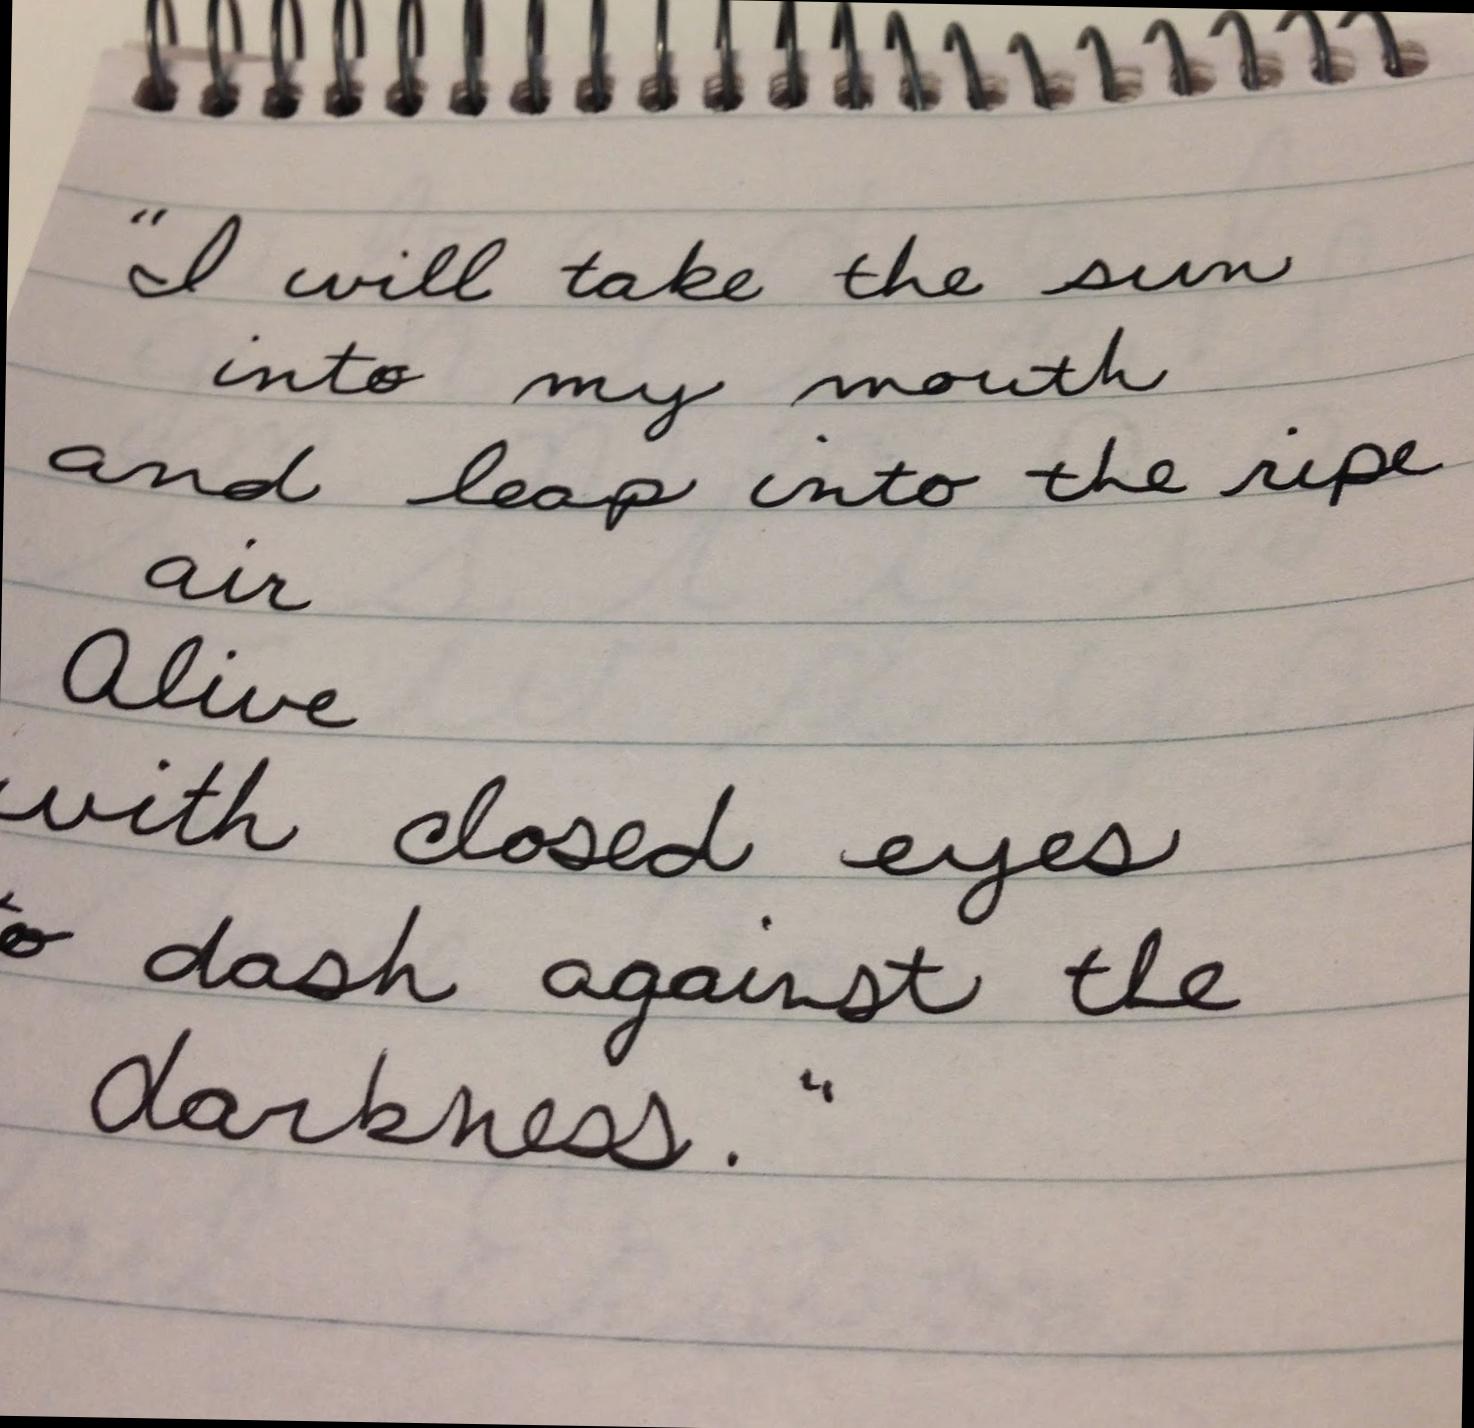 "I will take the sun
into my mouth
and leap into the ripe
air
Alive
with closed eyes
to dash against the
darkness."